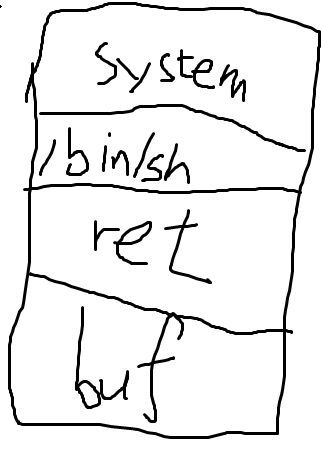 system
/bin/sh
ret
buf